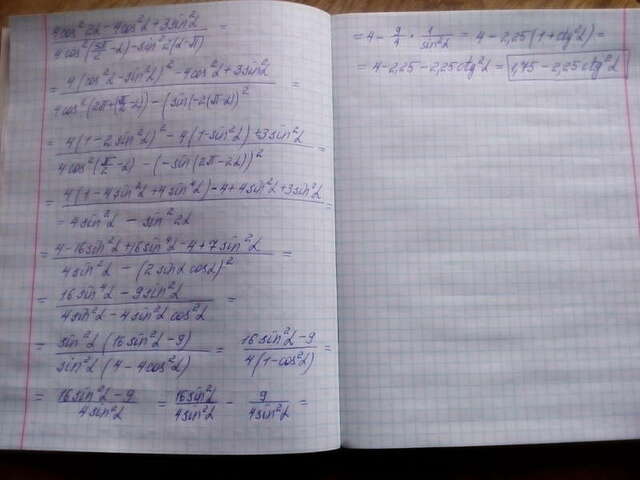 (4cos²2α - 4cos²α + 3sin²α)/(4cos²(5π/2 - α) - sin²2(α-π)) =
= (4(cos²α - sin²α)² - 4cos²α + 3sin²α)/(4cos²(2π+(π/2-α)) - (sin(-2(π-α))²) =
= (4(1-2sin²α)² - 4(1-sin²α)+3sin²α)/(4cos²(π/2-α) - (-sin(2π-2α))²) =
= (4(1-4sin²α+4sin⁴α)-4+4sin²α+3sin²α)/(=4sin²α - sin²2α) =
= (4-16sin²α+16sin⁴α-4+7sin²α)/(4sin²α - (2sinα cosα)²) =
= (16sin⁴α - 9sin²α)/(4sin²α - 4sin²α cos²α) =
= (sin²α(16sin²α-9))/(sin²α(4-4cos²α)) = (16sin²α-9)/(4(1-cos²α)) =
= (16sin²α-9)/(4sin²α) = (16sin²α)/(4sin²α) - 9/(4sin²α) =
= 4 - 9/4 · 1/sin²α = 4 - 2,25(1+ctg²α) =
= 4-2,25-2,25ctg²α = 1,75-2,25ctg²α